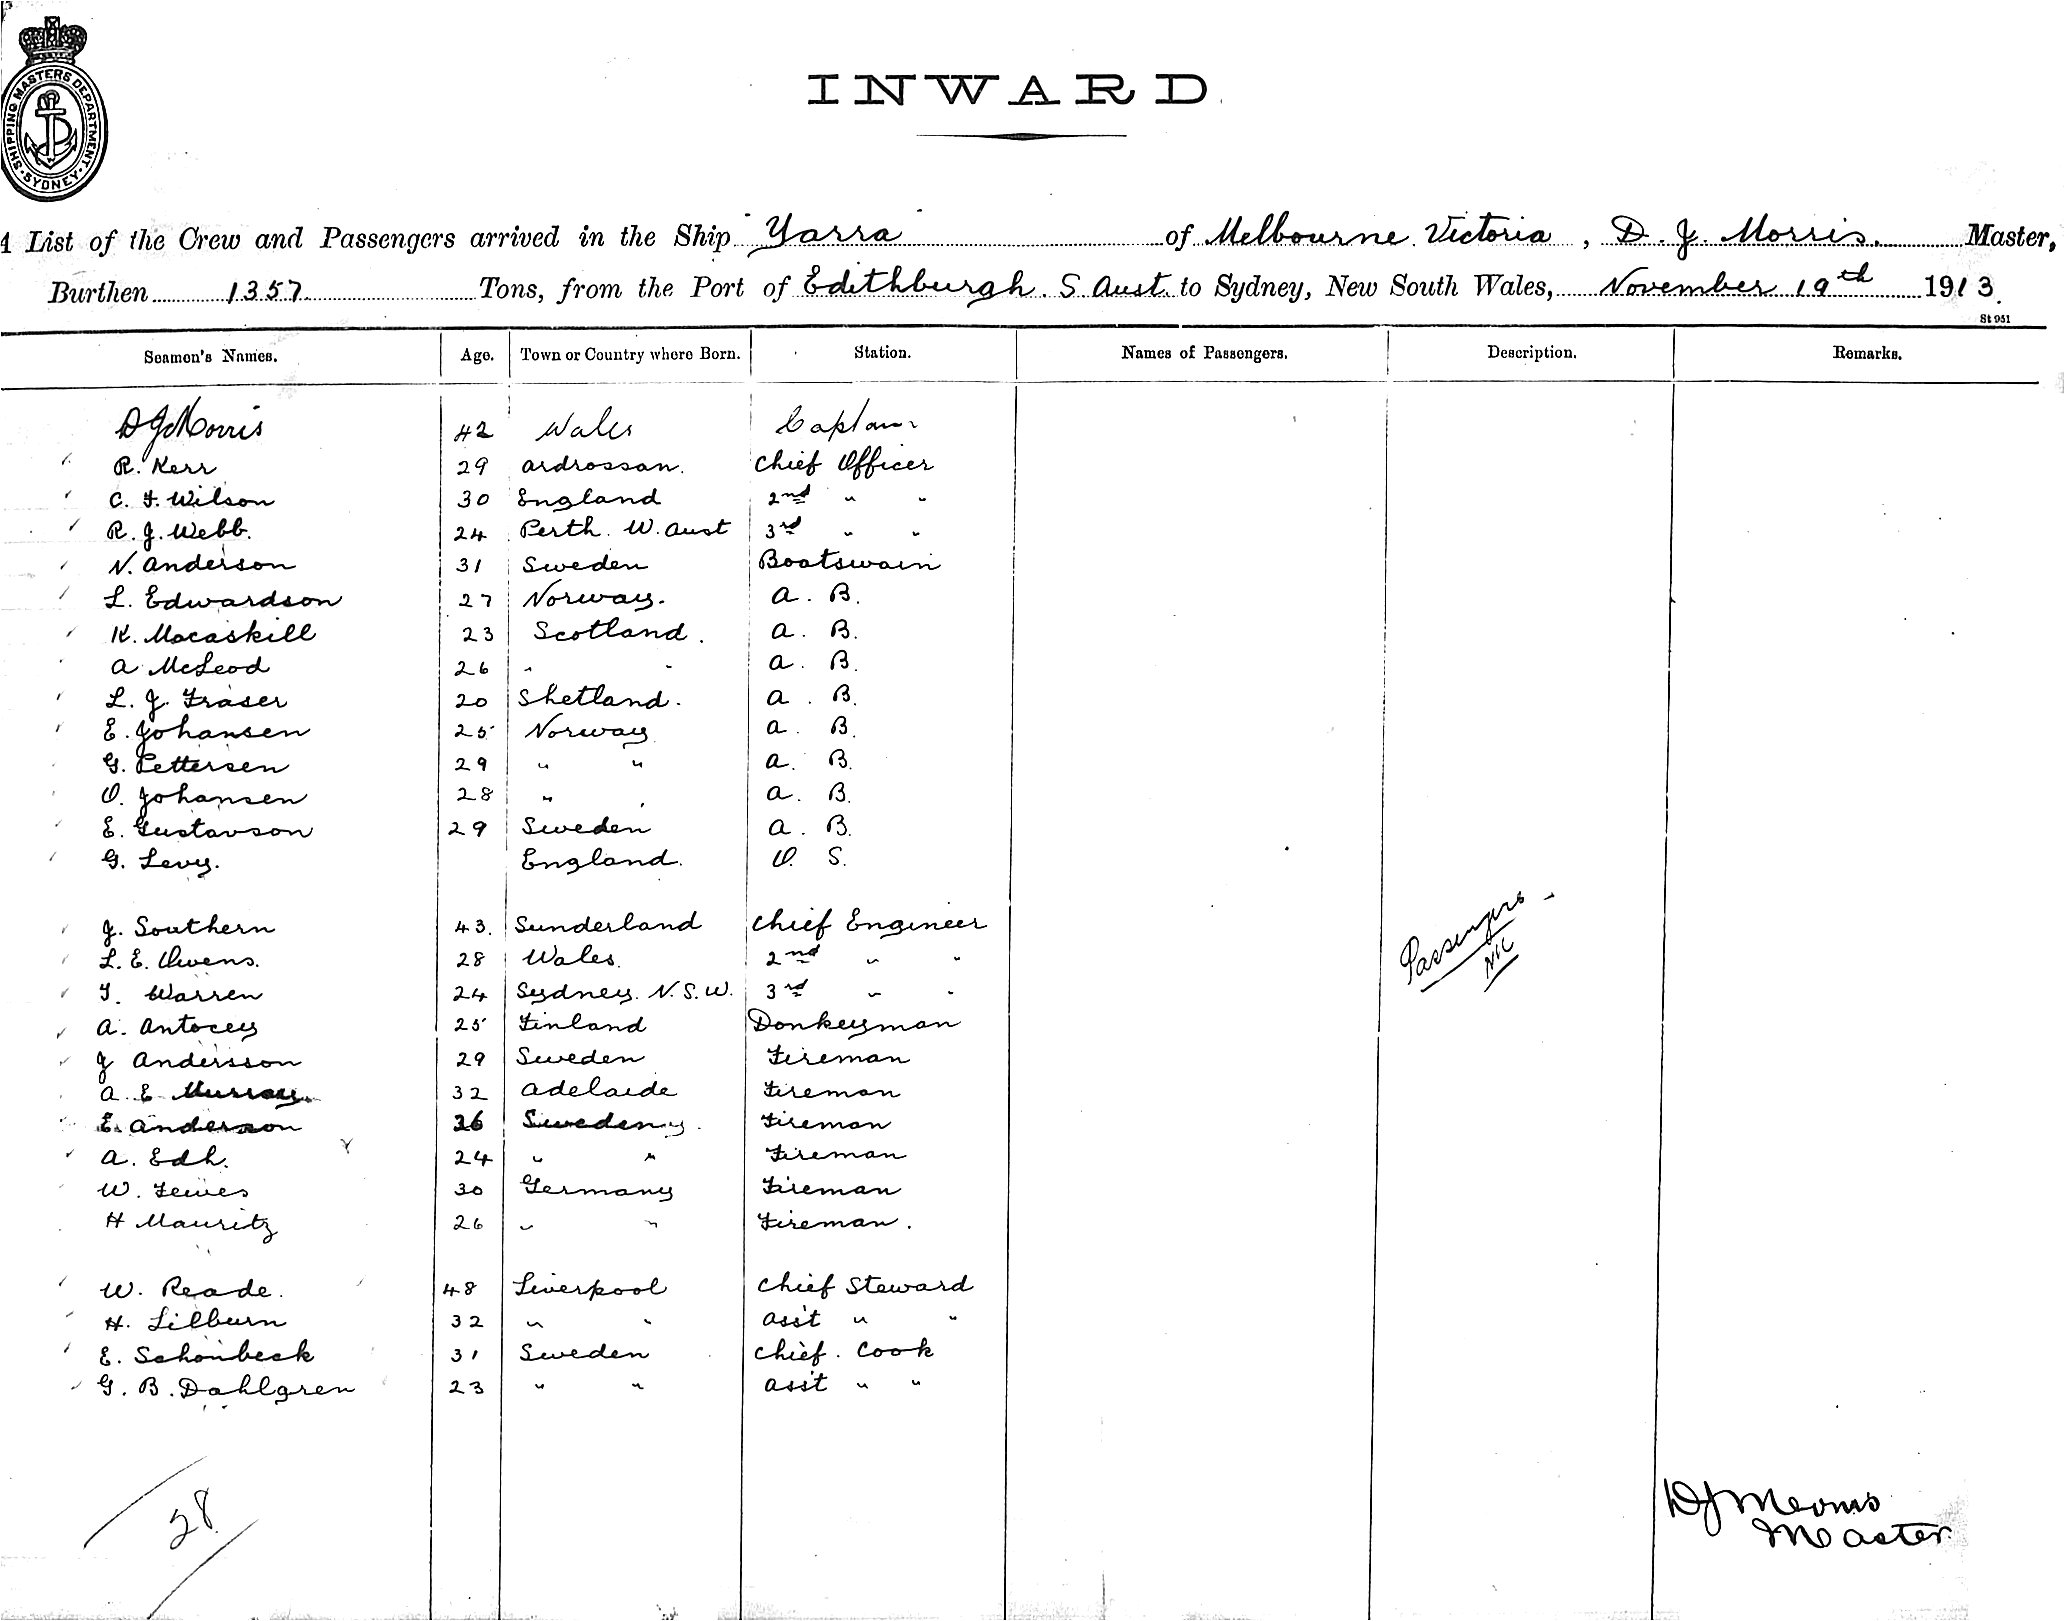 SHIPPING MASTERS DEPARTMENT
SYDNEY
INWARD
A List of the Crew and Passengers arrived in the Ship Yarra of Melbourne Victoria, D. J. Morris. Master,
Burthen 1357 Tons, from the Port of Edithburgh. S Aust. to Sydney, New South Wales, November 19th 1913.
St 951
Seamen's Names. Age. Town or Country where Born. Station. Names of Passengers. Description. Remarks.
D J Morris 42 Wales Captain
R. Kerr 29 Ardrossan. Chief Officer
C. F. Wilson 30 England 2nd " "
R. J. Webb. 24 Perth. W. Aust 3rd " "
N. Anderson 31 Sweden Boatswain
L. Edwardson 27 Norway. A. B.
K. Macaskill 23 Scotland. A. B.
A McLeod 26 " " A. B.
L. J. Fraser 20 Shetland. A. B.
E. Johansen 25 Norway A. B.
G. Pettersen 29 " " A. B.
O. Johansen 28 " " A. B.
E. Gustavson 29 Sweden A. B.
G. Levy. England. O. S.
J. Southern 43. Sunderland Chief Engineer
L. E. Owens. 28 Wales. 2nd " "
T. Warren 24 Sydney. N. S. W. 3rd " "
A. Antocey 25 Finland Donkeyman
J Andersson 29 Sweden Fireman
A. E Murray. 32 Adelaide Fireman
E. Anderson 26 Sweden Fireman
A. Edh. 24 " " Fireman
W. Fewes 30 Germany Fireman
H Mauritz 26 " " Fireman.
Passengers
Nil
W. Reade. 48 Liverpool Chief Steward
H. Lilburn 32 " " Asst " "
E. Schonbeck 31 Sweden Chief. Cook
G. B. Dahlgren 23 " " Asst " "
28
D J Morris
Master